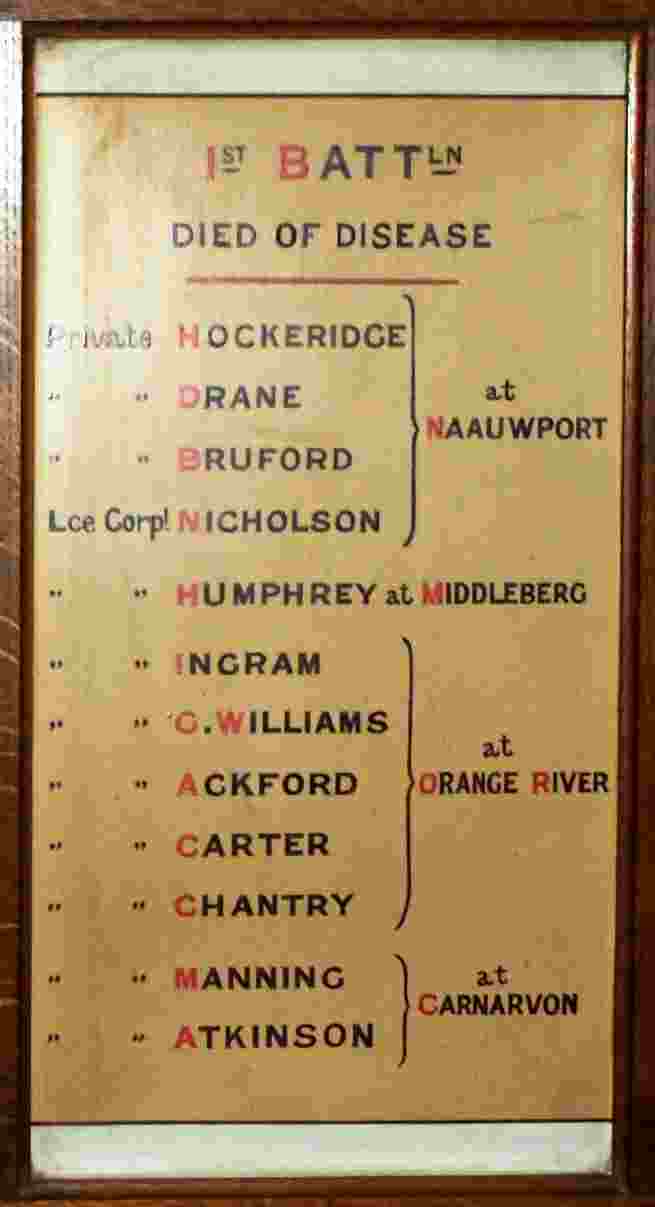 1ST BATTLN
DIED OF DISEASE
Private HOCKERIDGE
" " DRANE
at
NAAUWPORT
" " BRUFORD
Lce Corpl NICHOLSON
" " HUMPHREY at MIDDLEBERG
" " INGRAM
" " G.WILLIAMS
at
ORANGE RIVER
" " ACKFORD
" " CARTER
" " CHANTRY
" " MANNING
at
CARNARVON
" " ATKINSON